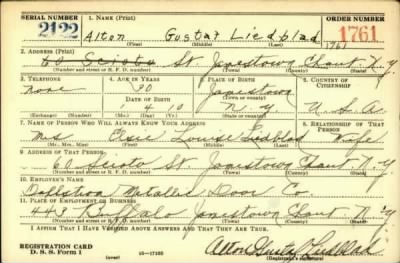 SERIAL NUMBER 1. NAME (Print) ORDER NUMBER
2122 Alton Gustaf Liedblad 1761
(First) (Middle) (Last)
2. ADDRESS (Print)
60 Scioto St. Jamestown Chaut N.Y.
(Number and street or R. F. D. number) (Town) (County) (State)
3. TELEPHONE 4. AGE IN YEARS 5. PLACE OF BIRTH 6. COUNTRY OF CITIZENSHIP
none 30 Jamestown
DATE OF BIRTH (Town or county)
1 4 10 N.Y U.S.A.
(Exchange) (Number) (Mo.) (Day) (Yr.) (State or country)
7. NAME OF PERSON WHO WILL ALWAYS KNOW YOUR ADDRESS 8. RELATIONSHIP OF THAT PERSON
Mrs Elsie Louise Liedblad Wife
(Mr., Mrs., Miss) (First) (Middle) (Last)
9. ADDRESS OF THAT PERSON
60 Scioto St Jamestown Chaut N.Y
(Number and street or R. F. D. number) (Town) (County) (State)
10. EMPLOYER'S NAME
Dahlstrom Metallic Door Co
11. PLACE OF EMPLOYMENT OR BUSINESS
443 Buffalo Jamestown Chaut N.Y
(Number and street or R. F. D. number) (Town) (County) (State)
I AFFIRM THAT I HAVE VERIFIED ABOVE ANSWERS AND THAT THEY ARE TRUE.
REGISTRATION CARD
D. S. S. Form 1 (over) 16—17105 Alton Gustaf Liedblad
(Registrant's signature)